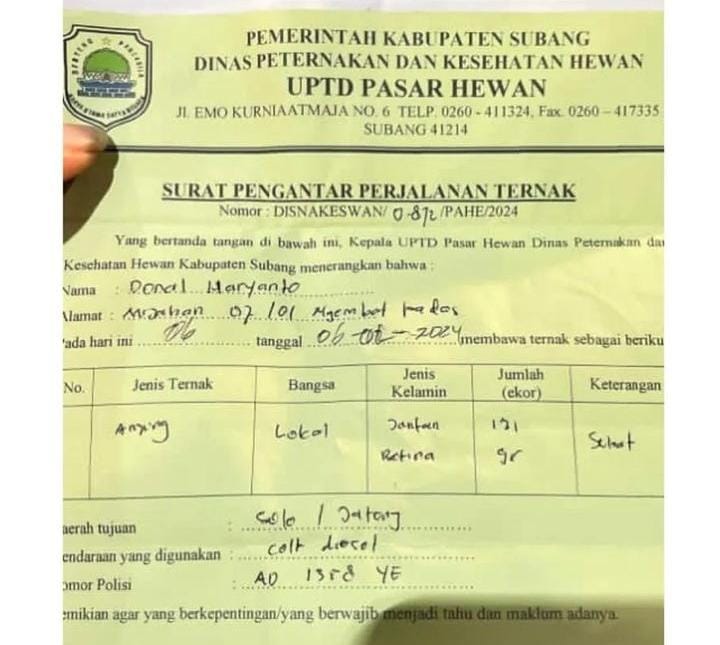 PEMERINTAH KABUPATEN SUBANG
DINAS PETERNAKAN DAN KESEHATAN HEWAN
UPTD PASAR HEWAN
Jl. EMO KURNIAATMAJA NO. 6 TELP. 0260 - 411324, Fax. 0260 – 417335
SUBANG 41214
SURAT PENGANTAR PERJALANAN TERNAK
Nomor : DISNAKESWAN/ 0.872 /PAHE/2024
Yang bertanda tangan di bawah ini, Kepala UPTD Pasar Hewan Dinas Peternakan da
Kesehatan Hewan Kabupaten Subang menerangkan bahwa :
Nama : Donal Maryanto
Alamat : 07/01
ada hari ini 06 tanggal 06-08-2024 membawa ternak sebagai beriku
No. Jenis Ternak Bangsa Jenis Kelamin Jumlah (ekor) Keterangan
Anjing Lokal Jantan Sehat
Betina
aerah tujuan : Solo / Jateng
endaraan yang digunakan : colt diesel
omor Polisi : AD 1358 YE
emikian agar yang berkepentingan/yang berwajib menjadi tahu dan maklum adanya.